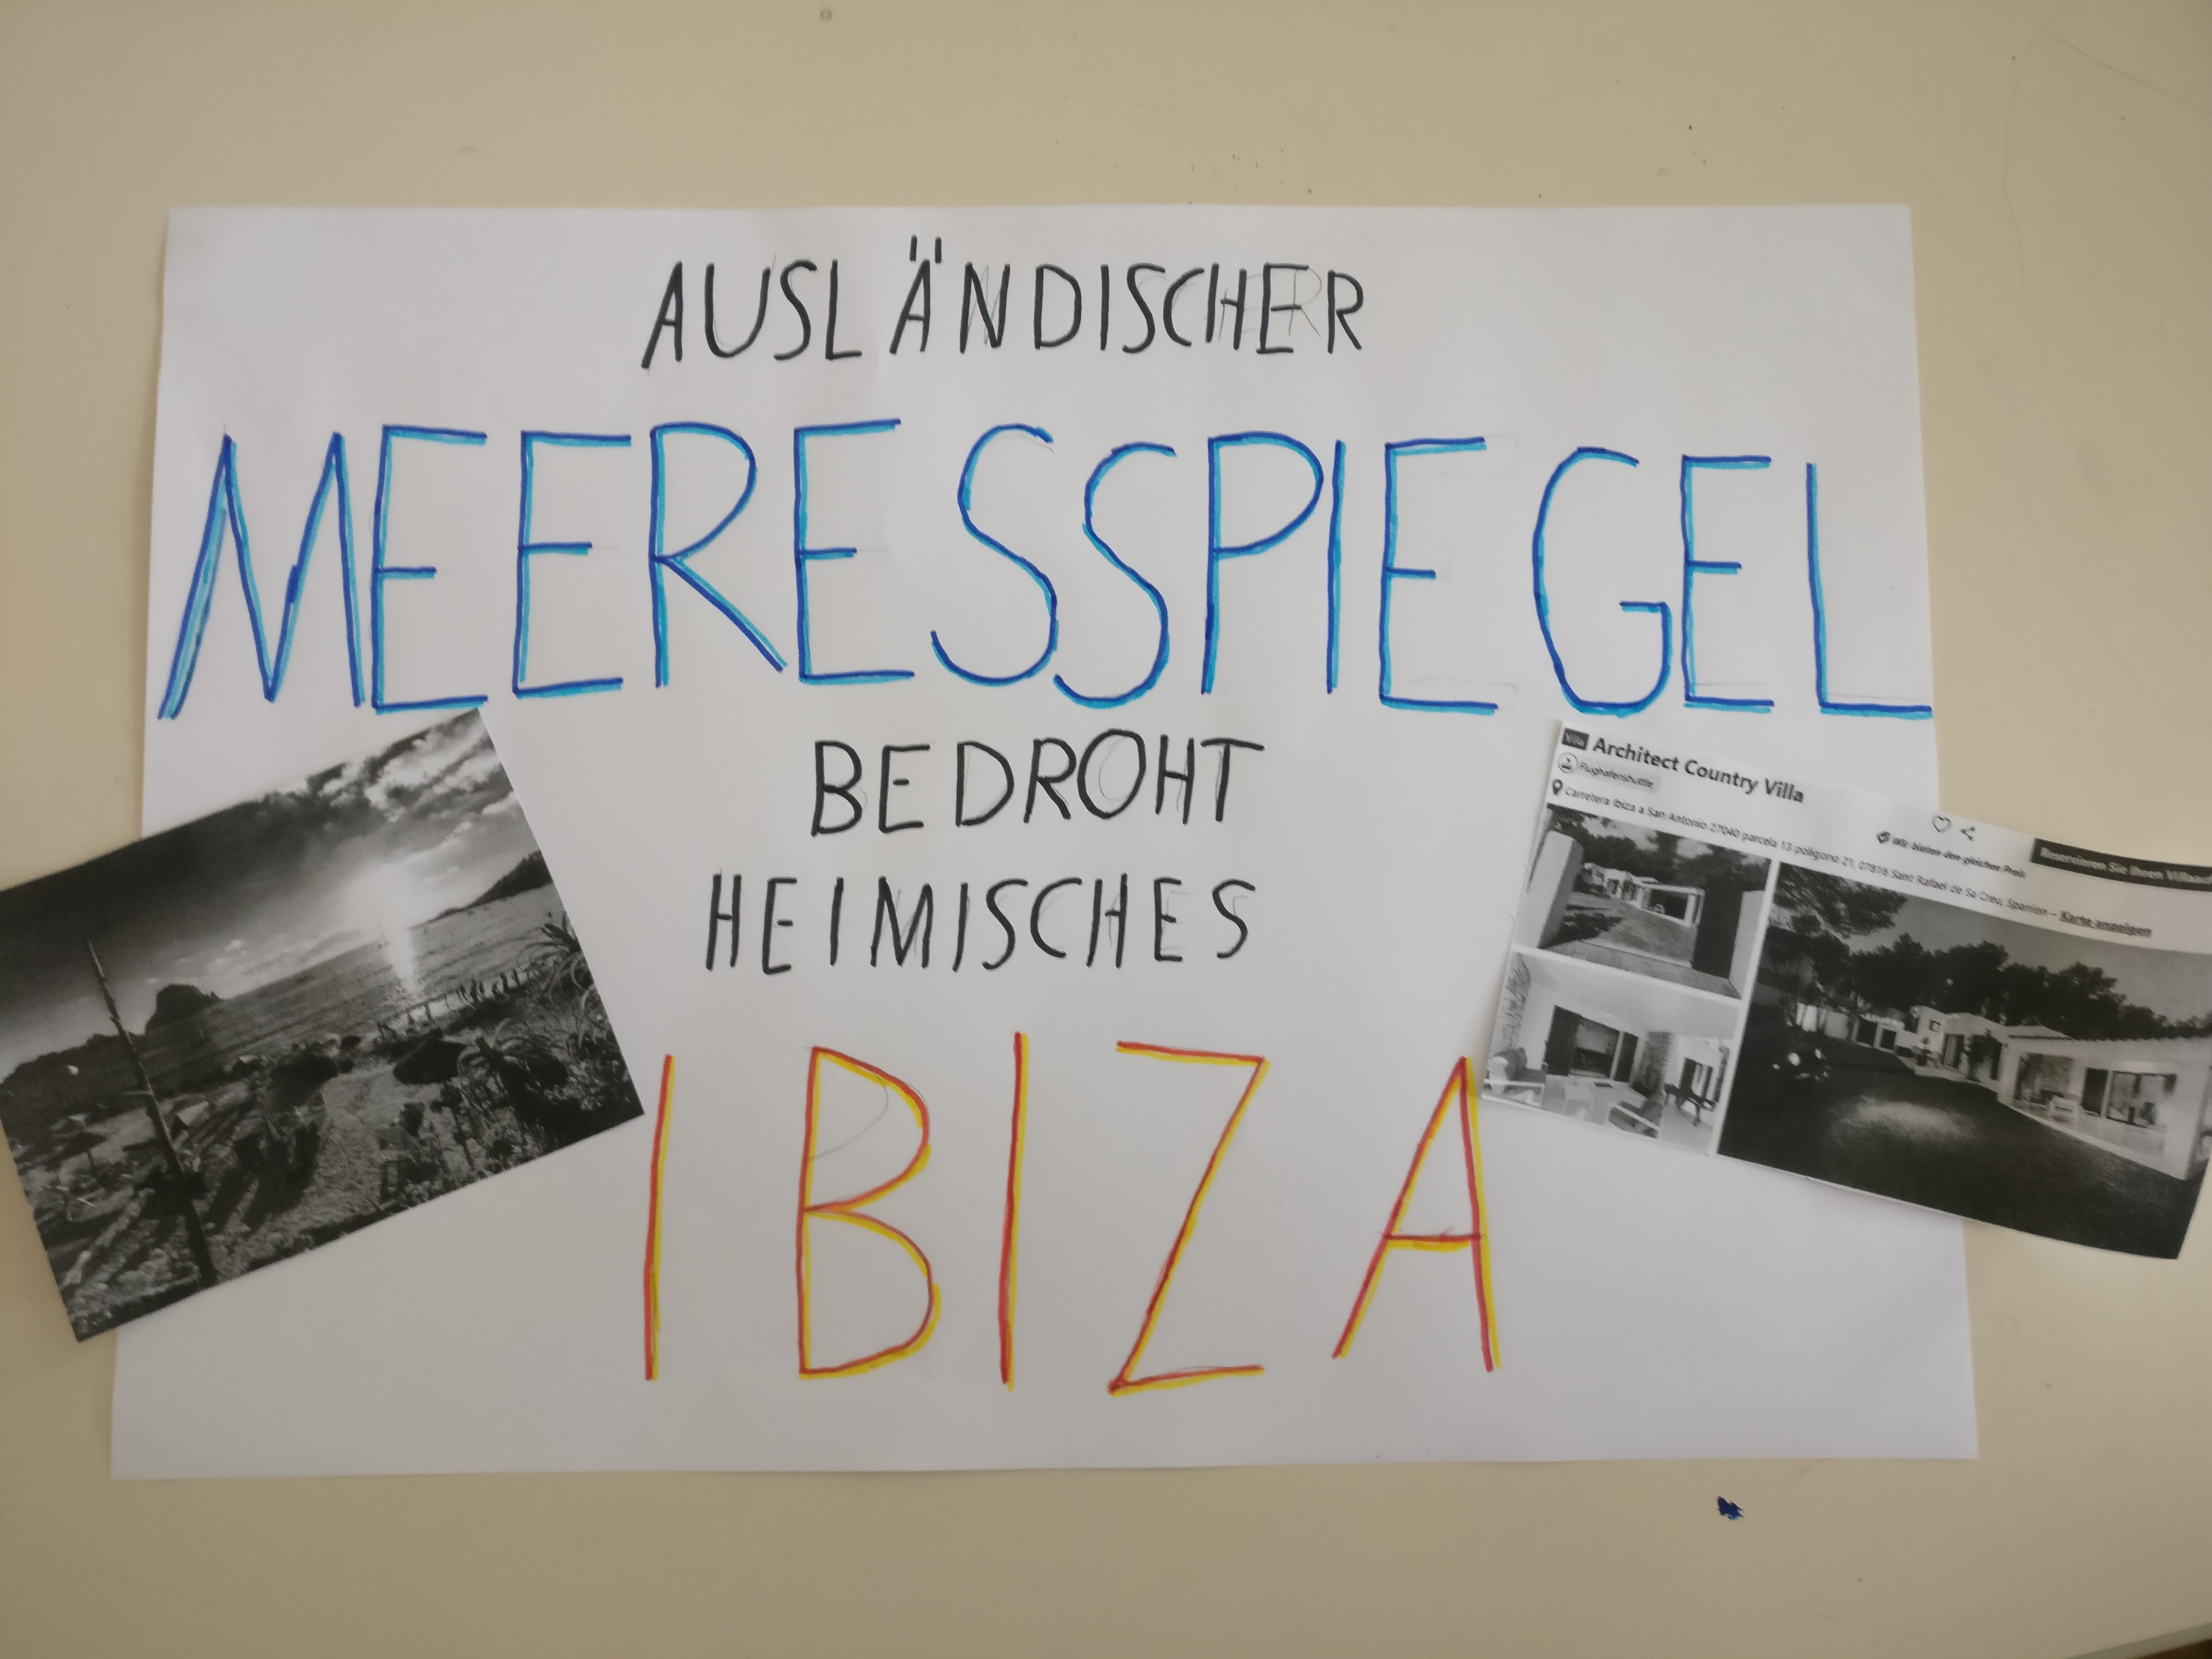 AUSLÄNDISCHER
MEERESSPIEGEL
BEDROHT
HEIMISCHES
IBIZA
Villa Architect Country Villa
Flughafenshuttle
Carretera Ibiza a San Antonio 27040 parcela 13 poligono 21, 07816 Sant Rafael de Sa Creu, Spanien – Karte anzeigen
Wir bieten den gleichen Preis
Reservieren Sie Ihren